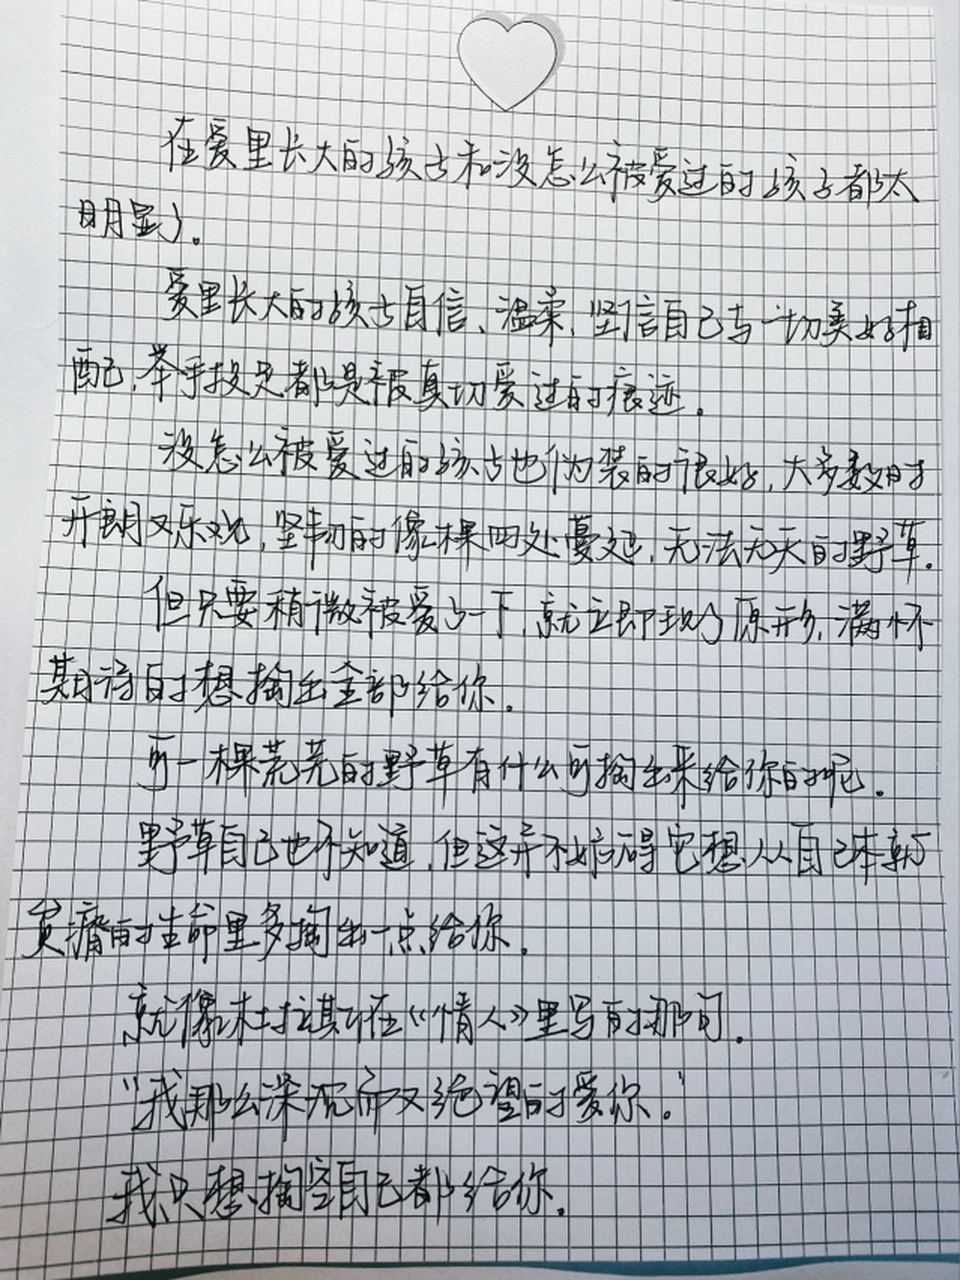 在爱里长大的孩子和没怎么被爱过的孩子都太
明显了。
爱里长大的孩子自信、温柔，坚信自己与一切美好相
配，举手投足都是被真切爱过的痕迹。
没怎么被爱过的孩子也伪装的很好，大多数时
开朗又乐观，坚韧的像棵四处蔓延，无法无天的野草。
但只要稍微被爱了一下，就立即现了原形，满怀
期待的想掏出全部给你。
可一棵荒芜的野草有什么可掏出来给你的呢。
野草自己也不知道，但这并不妨碍它想从自己本就
贫瘠的生命里多掏出一点给你。
就像杜拉斯在《情人》里写的那句。
“我那么深沉而又绝望的爱你。”
我只想掏空自己都给你。